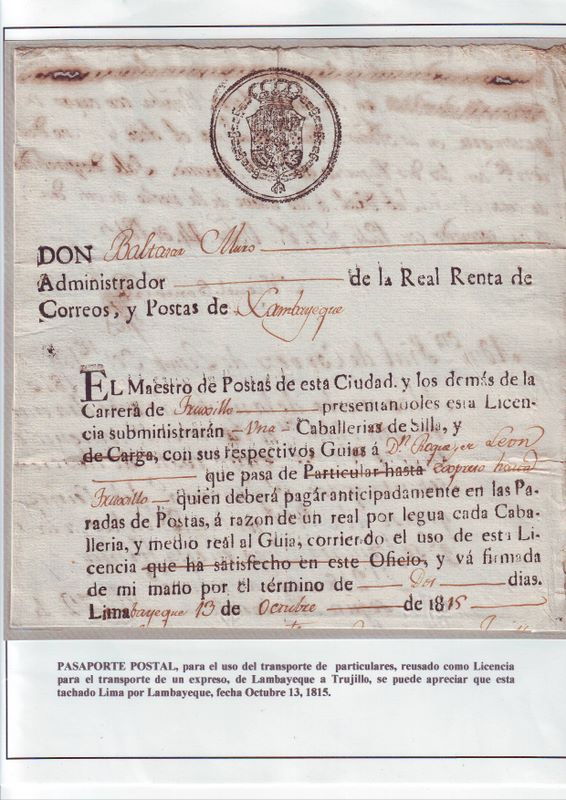 DON Baltasar Muro
Administrador de la Real Renta de
Correos, y Postas de Lambayeque
EL Maestro de Postas de esta Ciudad. y los demás de la
Carrera de Truxillo presentandoles esta Licen-
cia subministrarán Una Caballerias de Silla, y
de Carga, con sus respectivos Guias á Dn. Roque León
que pasa de Particular hasta expreso hasta
Truxillo quien deberá pagár anticipadamente en las Pa-
radas de Postas, á razon de un real por legua cada Caba-
lleria, y medio reál al Guia, corriendo el uso de esta Li-
cencia que ha satisfecho en este Oficio, y vá firmada
de mi mano por el término de Dos dias.
Limabayeque 13 de Octubre de 1815
PASAPORTE POSTAL, para el uso del transporte de particulares, reusado como Licencia
para el transporte de un expreso, de Lambayeque a Trujillo, se puede apreciar que esta
tachado Lima por Lambayeque, fecha Octubre 13, 1815.